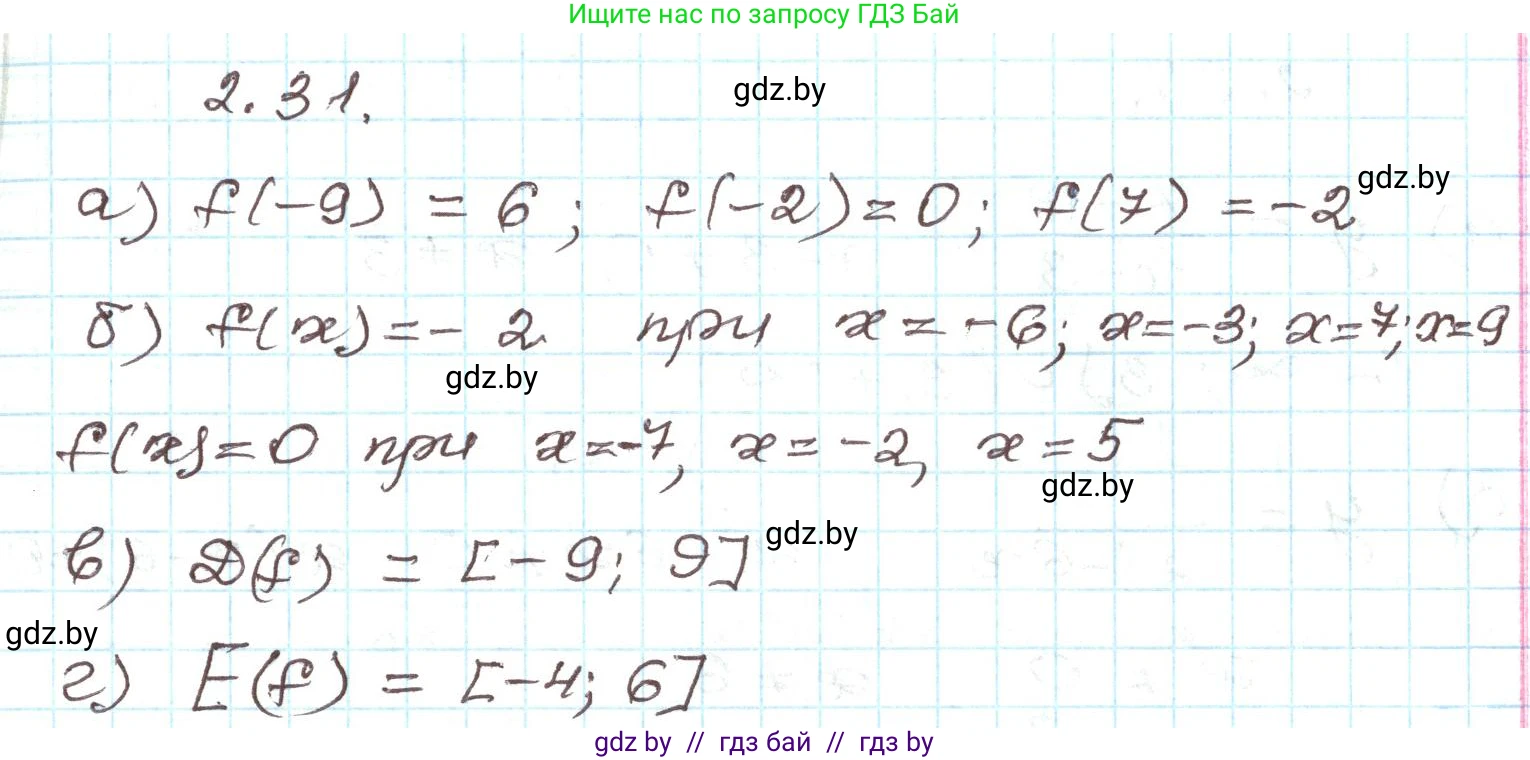 Ищите нас по запросу ГДЗ Бай
2.31.
gdz.by
а) f(-9) = 6; f(-2)=0; f(7) = -2
gdz.by
б) f(x)=-2 при x=-6; x=-3; x=7; x=9
gdz.by
f(x)=0 при x=-7, x=-2, x=5
gdz.by
в) D(f) = [-9; 9]
gdz.by
gdz.by
г) E(f) = [-4; 6]
gdz by // гдз бай // гдз by